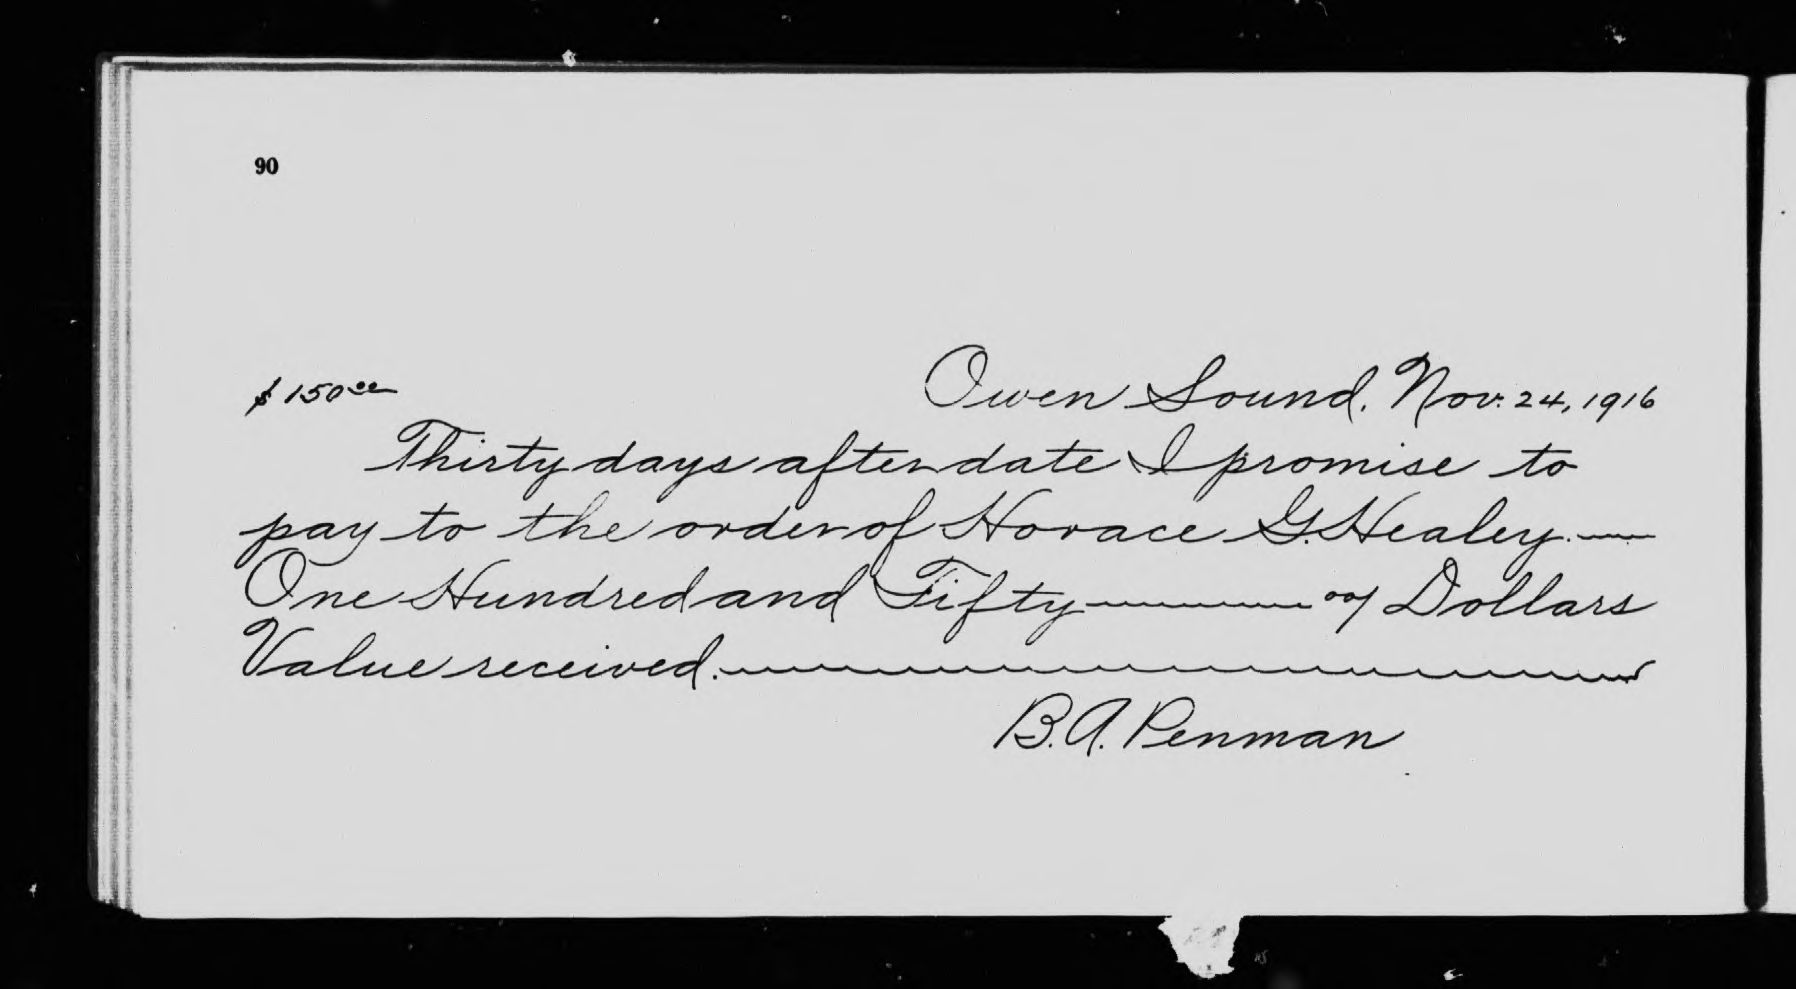 90
$150 00 Owen Sound, Nov. 24, 1916
Thirty days after date I promise to
pay to the order of Horace G. Healey.
One Hundred and Fifty 00/ Dollars
Value received.
B. A. Penman